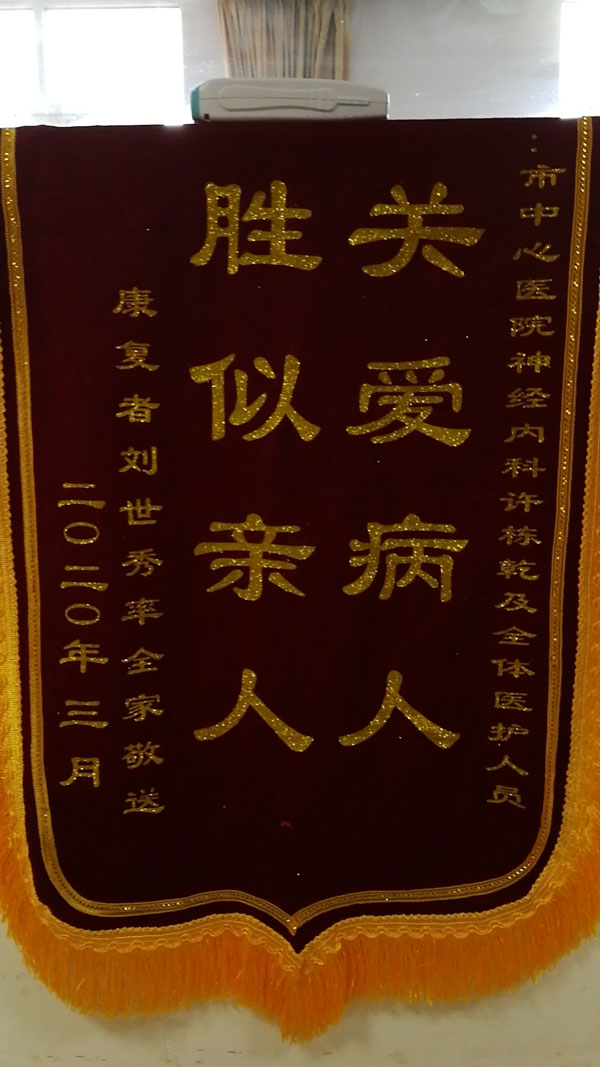 ：市中心医院神经内科许栋乾及全体医护人员
关爱病人
胜似亲人
康复者刘世秀率全家敬送
二〇二〇年三月